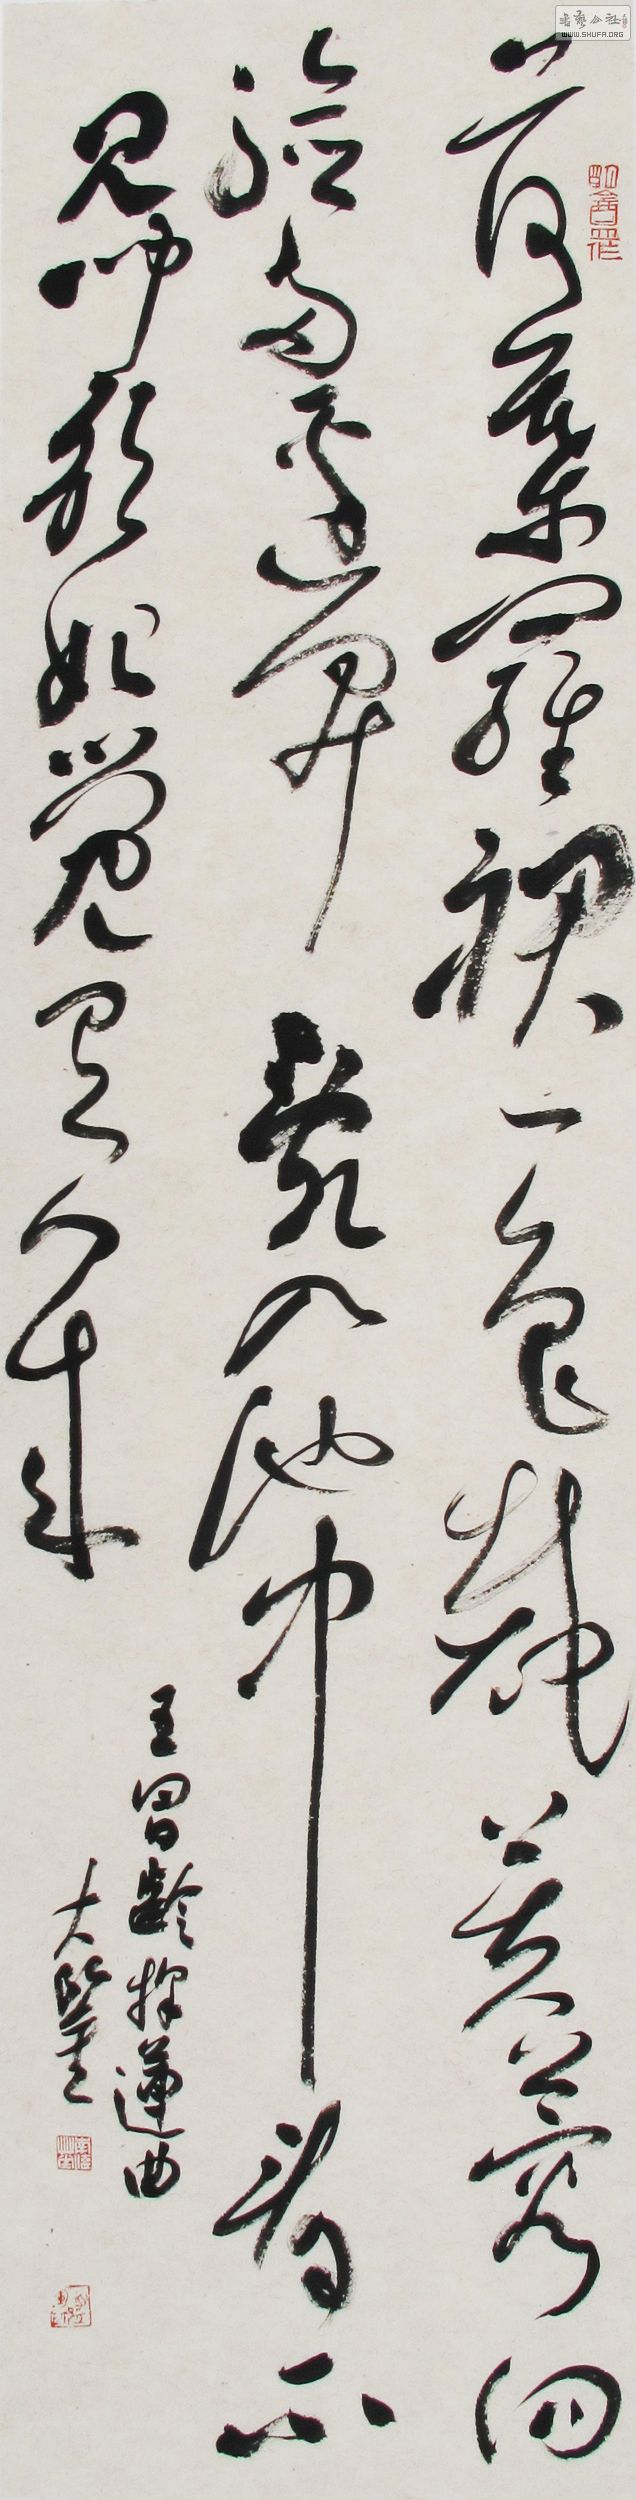 荷葉羅裙一色裁芙蓉向
臉兩邊開亂入池中看不
見聞歌始覺有人來
王昌齡採蓮曲
大
書藝公社
WWW.SHUFA.ORG